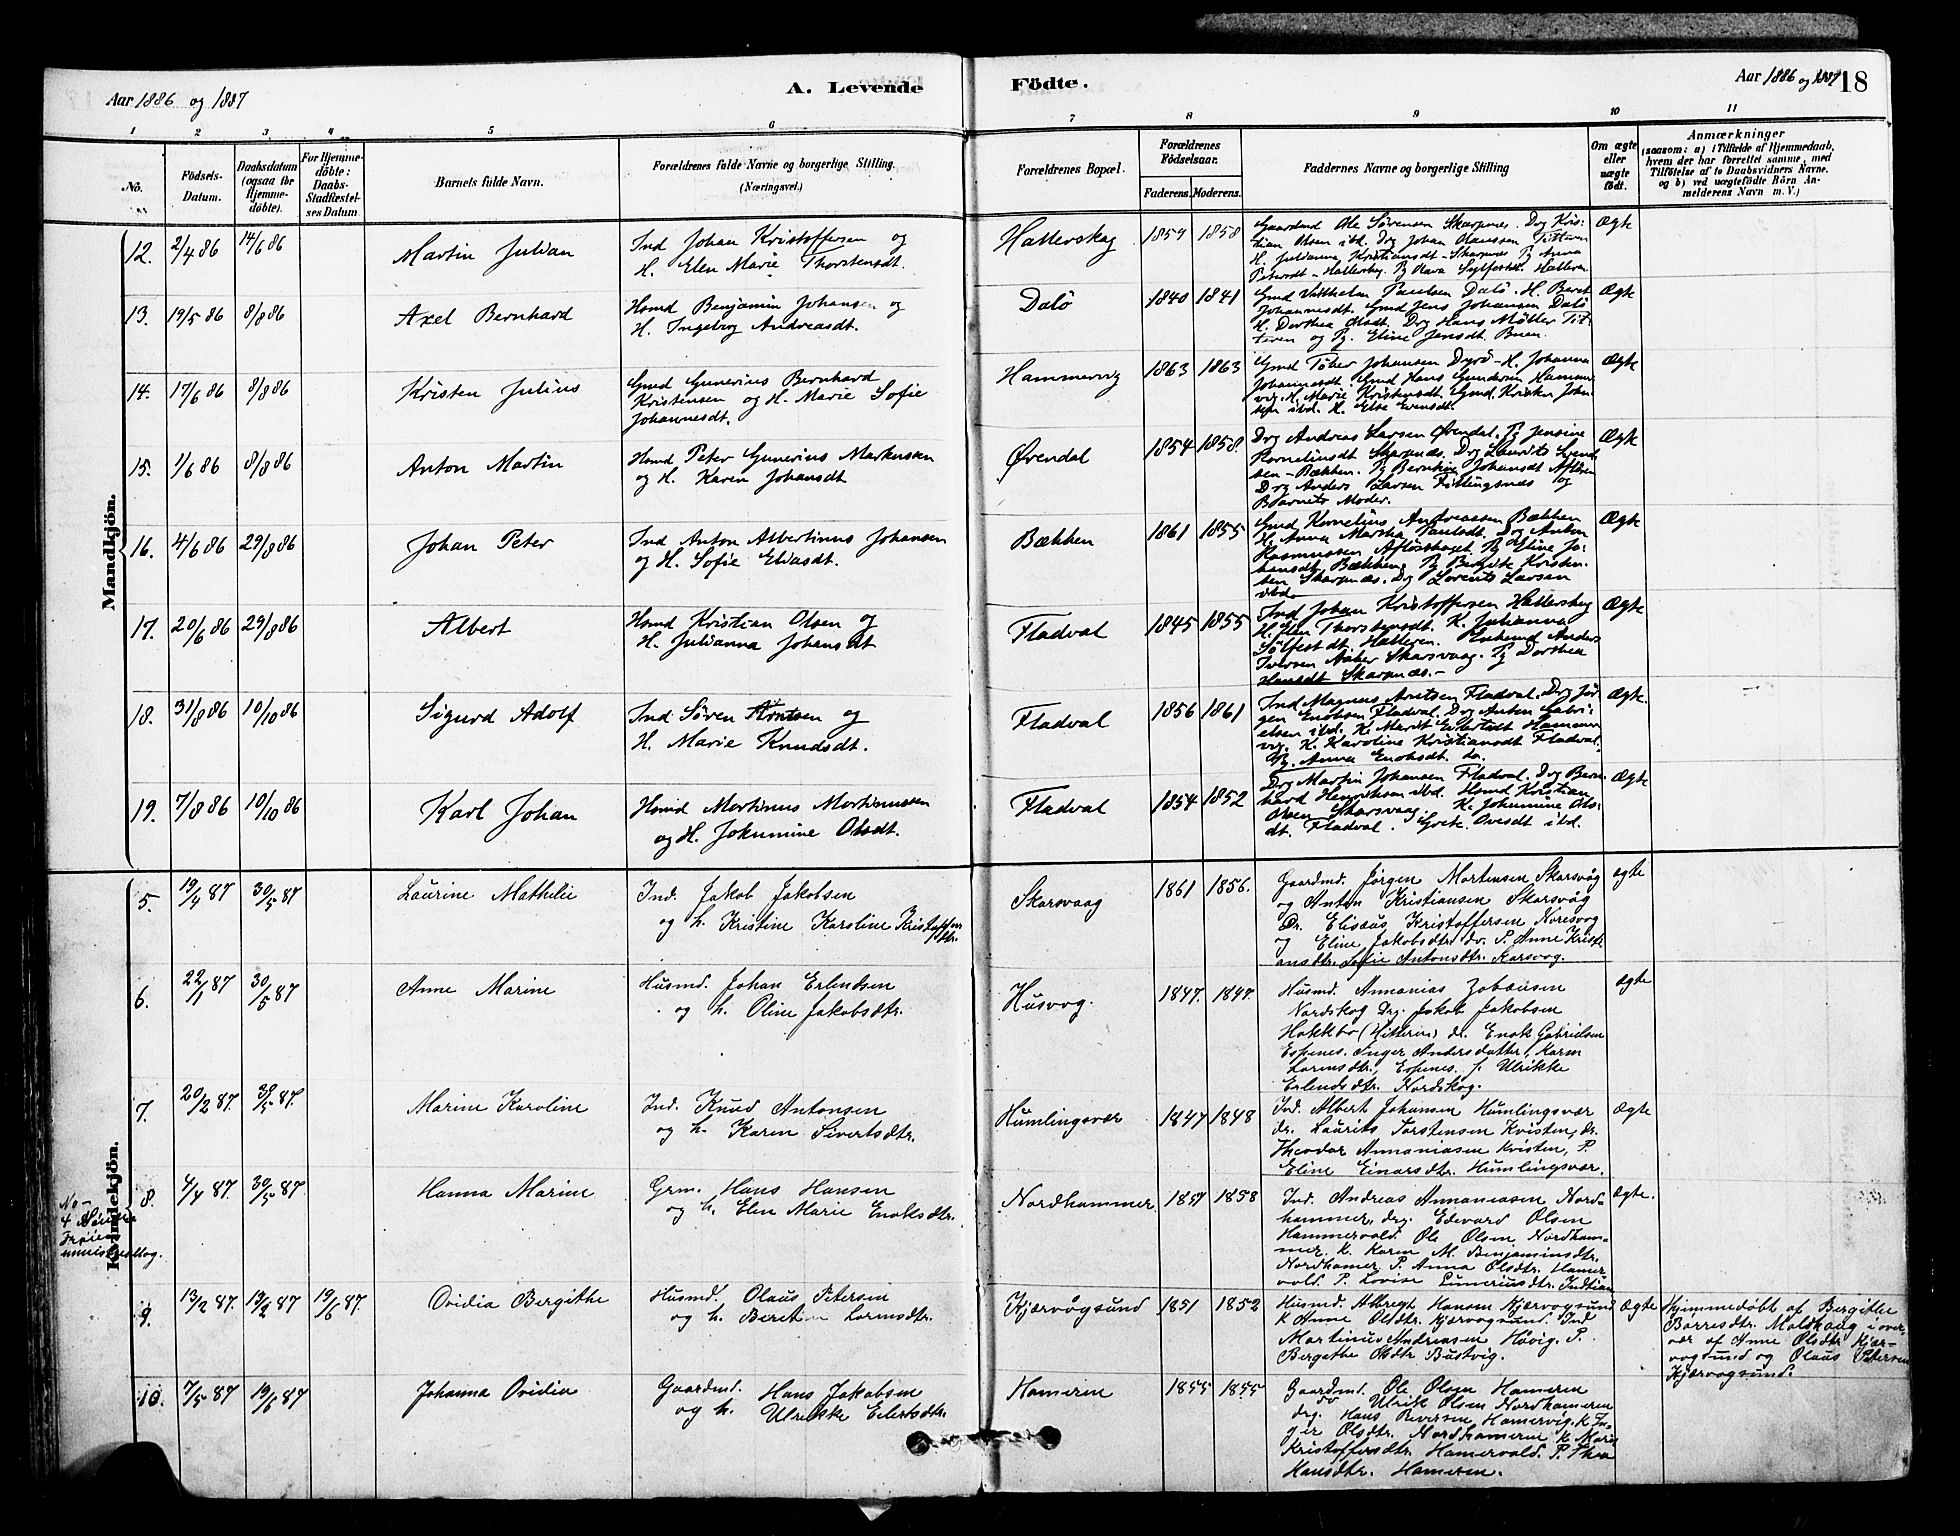 Aar 1886 og 1887
A. Levende
Födte.
Aar 1886 og 1887
18
1 2 3 4 5 6 7 8 9 10 11
No.
Födsels-
Datum.
Daabsdatum
(ogsaa for
Hjemme-
döbte).
For Hjemme-
döbte:
Daabs-
Stadfæstel-
ses Datum.
Barnets fulde Navn.
Forældrenes fulde Navne og borgerlige Stilling.
(Næringsvei.)
Forældrenes Bopæl.
Forældrenes
Födselsaar.
Faderens. Moderens.
Faddernes Navne og borgerlige Stilling
Om ægte
eller
uægte
födt.
Anmærkninger
(saasom: a) i Tilfælde af Hjemmedaab,
hvem der har forrettet samme, med
Tilföielse af to Daabsvidners Navne,
og b) ved uægtefödte Börn An-
melderens Navn m. V.)
Mandkjön.
12. 2/4 86 14/6 86
Martin Julian
Ind Johan Kristoffersen og
H. Elen Marie Thorstensdt.
Hatterskog
1859 1858
Gaardmd Ole Sørensen Skarpnes. Drg Kris-
tian Olsen ibd. Drg Johan Olaussen Titteran
H. Julianna Kristiansdt - Skarpnes Pg Anna
Petersdt - Hatterskog. Pg Olava Sylfestdt. Hatteren
Ægte
13. 19/5 86 8/8 86
Axel Bernhard
Hsmd Benjamin Johansen og
H. Ingebrg Andreasdt.
Dalö
1840 1841
Gmd Vilhelm Paulsen Dalö. H. Beret
Johannesdt. Gmd Jens Johansen Dalö
H. Dorthea Olsdt. Drg Hans Møller Tit-
teren og Pg. Eline Jensdt. Buen
Ægte
14. 17/6 86 8/8 86
Kristen Julius
Gmd Gunerius Bernhard
Kristensen og H. Marie Sofie
Johannesdt.
Hammervig
1863 1863
Gmd Peter Johansen Dyrö - H. Johanna
Johannesdt. Gmd Hans Gundersen Hammer-
vig. H. Marie Kristensdt. Gmd. Kristen Johan-
sen ibd. H. Else Evensdt.
Ægte
15. 1/6 86 8/8 86
Anton Martin
Hsmd Peter Gunerius Markussen
og H. Karen Johansdt
Ørendal
1854 1858.
Drg Andreas Larsen Ørendal. Pg Jensine
Korneliusdt Skarpnæs. Drg Laurits Svend-
sen - Bækken. Pg Bernhine Johansdt Afløsen
Drg Anders Larsen Fittingsnæs og
Barnets Moder.
Ægte
16. 4/6 86 29/8 86
Johan Peter
Ind Anton Albertinus Johansen
og H. Sofie Eliasdt.
Bækken
1861 1855
Gmd Kornelius Andreassen Bækken
H. Anna Martha Paulsdt. Drg Anton
Rasmussen Afløshaget. Pg Eline Jo-
hansdt. Bækken. Pg Bergite Kristen-
sen Skarpnæs. Drg Lorents Larsen
ibd.
Ægte
17. 20/6 86 29/8 86
Albert
Hsmd Kristian Olsen og
H. Julianna Johansdt
Fladval
1845 1855
Ind Johan Kristoffersen Hatterskog
H. Elen Thorstensdt. K. Julianna
Sölfestdt. Hatteren. Enkemd Anders
Iversen Aaker Skarsvaag. Pg Dorthea
Hansdt Skarpnæs. -
Ægte
18. 31/8 86 10/10 86
Sigurd Adolf
Ind Sören Arntsen og
H. Marie Knudsdt.
Fladval
1856 1861
Ind Magnus Arntsen Fladval. Drg Jör-
gen Enoksen Fladval. Drg Anton Gabri-
elsen ibd. K. Meret Eilertsdt Hammer-
vig. K. Karoline Kristiansdt Fladval.
Pg. Anna Enoksdt. do.
Ægte.
19. 7/8 86 10/10 86
Karl Johan
Hsmd Martinus Martinussen
og H. Jokumine Olsdt.
Fladval
1854 1852
Drg Martin Johansen Fladval. Drg Bern-
hard Henriksen ibd. Hsmd Kristian
Olsen Skarsvaag. K. Johanna Ols-
dt. Fladval. Grete Ovesdt ibd.
Ægte
Kvindekjön.
5. 19/4 87 30/5 87
Laurine Mathilie
Ind. Jakob Jakobsen
og h. Kristine Karoline Kristoffers
dtr.
Skarsvaag
1861 1856.
Gaardmd. Jørgen Mortensen Skarsvåg
og Anton Kristiansen Skarsvåg
Dr. Elisæus Kristoffersen Noresvog
og Eline Jakobsdtr. do. P. Anne Kristi-
ansdtr. Sofie Antonsdtr. Karsvog.
ægte
6. 22/1 87 30/5 87
Anne Marine
Husmd. Johan Erlendsen
og h. Oline Jakobsdtr.
Husvog.
1847. 1847.
Husmd. Annanias Zobæusen
Nordskog Drg. Jakob Jakobsen
Hokkbo (Hitteren) dr. Enok Gabrielsen
Espenes. Inger Andersdatter, Karen
Lornsdtr, Espenes. p. Ulrikke
Erlendsdtr. Nordskog.
ægte
7. 20/2 87. 30/5 87.
Marine Karoline
Ind. Knud Antonsen
og h. Karen Sivertsdtr.
Humlingsvær
1847 1848
Ind. Albert Johansen Humlingsvær
dr. Laurits Torstensen Kvisten, dr.
Theodor Annaniasen Kvisten, P.
Eline Einarsdtr. Humlingsvær.
ægte
No-
4 Söndre
Fröien
ministerialbog.
8. 4/4 87. 30/5 87
Hanna Marine
Grm. Hans Hansen
og h. Elen Marie Enoksdtr.
Nordhammer
1857 1858
Ind. Andreas Annaniasen Nord-
hammer, drg. Edevard Olsen
Hammervold. Ole Olsen Nordham-
mer. K. Karen M. Benjaminsdtr.
Nordhamer P. Anna Olsdtr. Hamer
vold. P. Lovise Guneriusdtr. Indtian
ægte.
9. 13/2 87. 19/6 87 19/6 87.
Ovidia Bergithe
Husmd. Olaus Petersen
og h. Beret Lornsdtr.
Kjærvågsund
1851 1852
Husmd. Albregt Hansen Kjærvogsund
K Anne Olsdtr. Kjærvogsund. Ind
Martinus Andreasen Høvig. P.
Bergithe Olsdtr. Bustvig.
ægte
Hjemmedøbt af Bergithe
Borresdtr. Moldhaug i over-
vær af Anne Olsdtr. Kjær-
vogsund og Olaus Petersen
Kjærvogsund.
10. 7/5 87 19/6 87
Johanna Ovidia
Gaardmd. Hans Jakobsen
og h. Ulrikke Eilertsdtr.
Hameren
1855 1855
Gaardmd. Ole Olsen Hameren
do Ulrik Olsen Nordhameren
drg. Hans Iversen Hamervig. K In-
ger Olsdtr. Nordhameren K Marie
Kristoffersdtr. Hamervold. P. Thea
Hansdtr. Hameren.
ægte